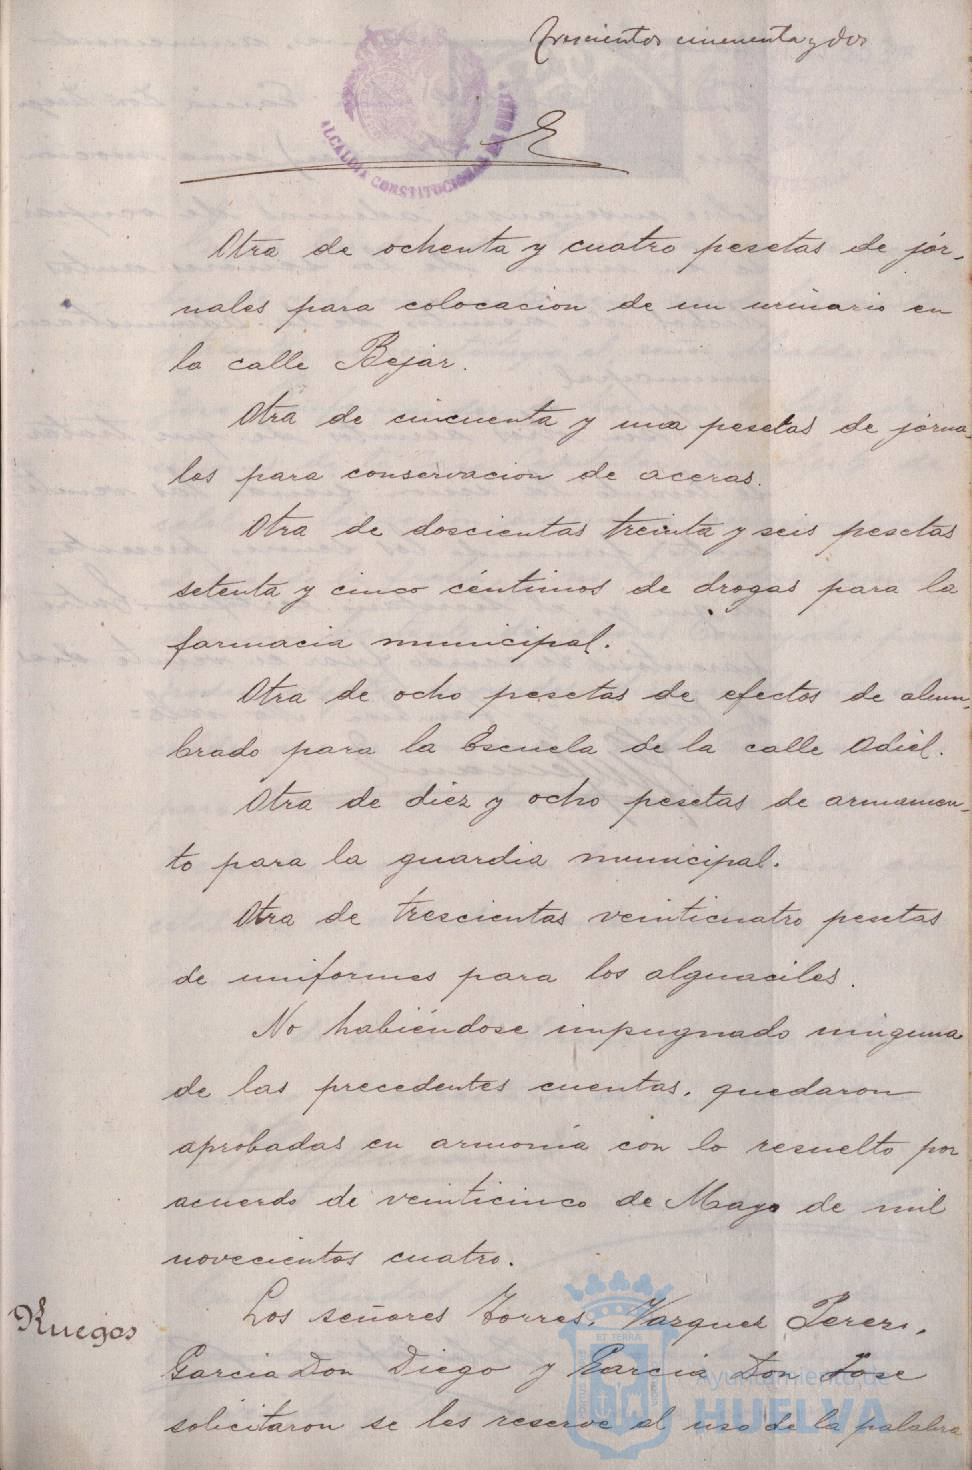 Trescientos cincuenta y dos
ALCALDIA CONSTITUCIONAL DE HUELVA
Otra de ochenta y cuatro pesetas de jor-
nales para colocacion de un urinario en
la calle Bejar.
Otra de cincuenta y una pesetas de jorna-
les para conservacion de aceras.
Otra de doscientas treinta y seis pesetas
setenta y cinco céntimos de drogas para la
farmacia municipal.
Otra de ocho pesetas de efectos de alum-
brado para la Escuela de la calle Odiel.
Otra de diez y ocho pesetas de armamen-
to para la guardia municipal.
Otra de trescientas veinticuatro pesetas
de uniformes para los alguaciles.
No habiéndose impugnado ninguna
de las precedentes cuentas, quedaron
aprobadas en armonía con lo resuelto por
acuerdo de veinticinco de Mayo de mil
novecientos cuatro.
Ruegos
Los señores Torres, Vazquez Perez,
Garcia Don Diego y Garcia Don Jose
solicitaron se les reserve el uso de la palabra
Ayuntamiento de
HUELVA